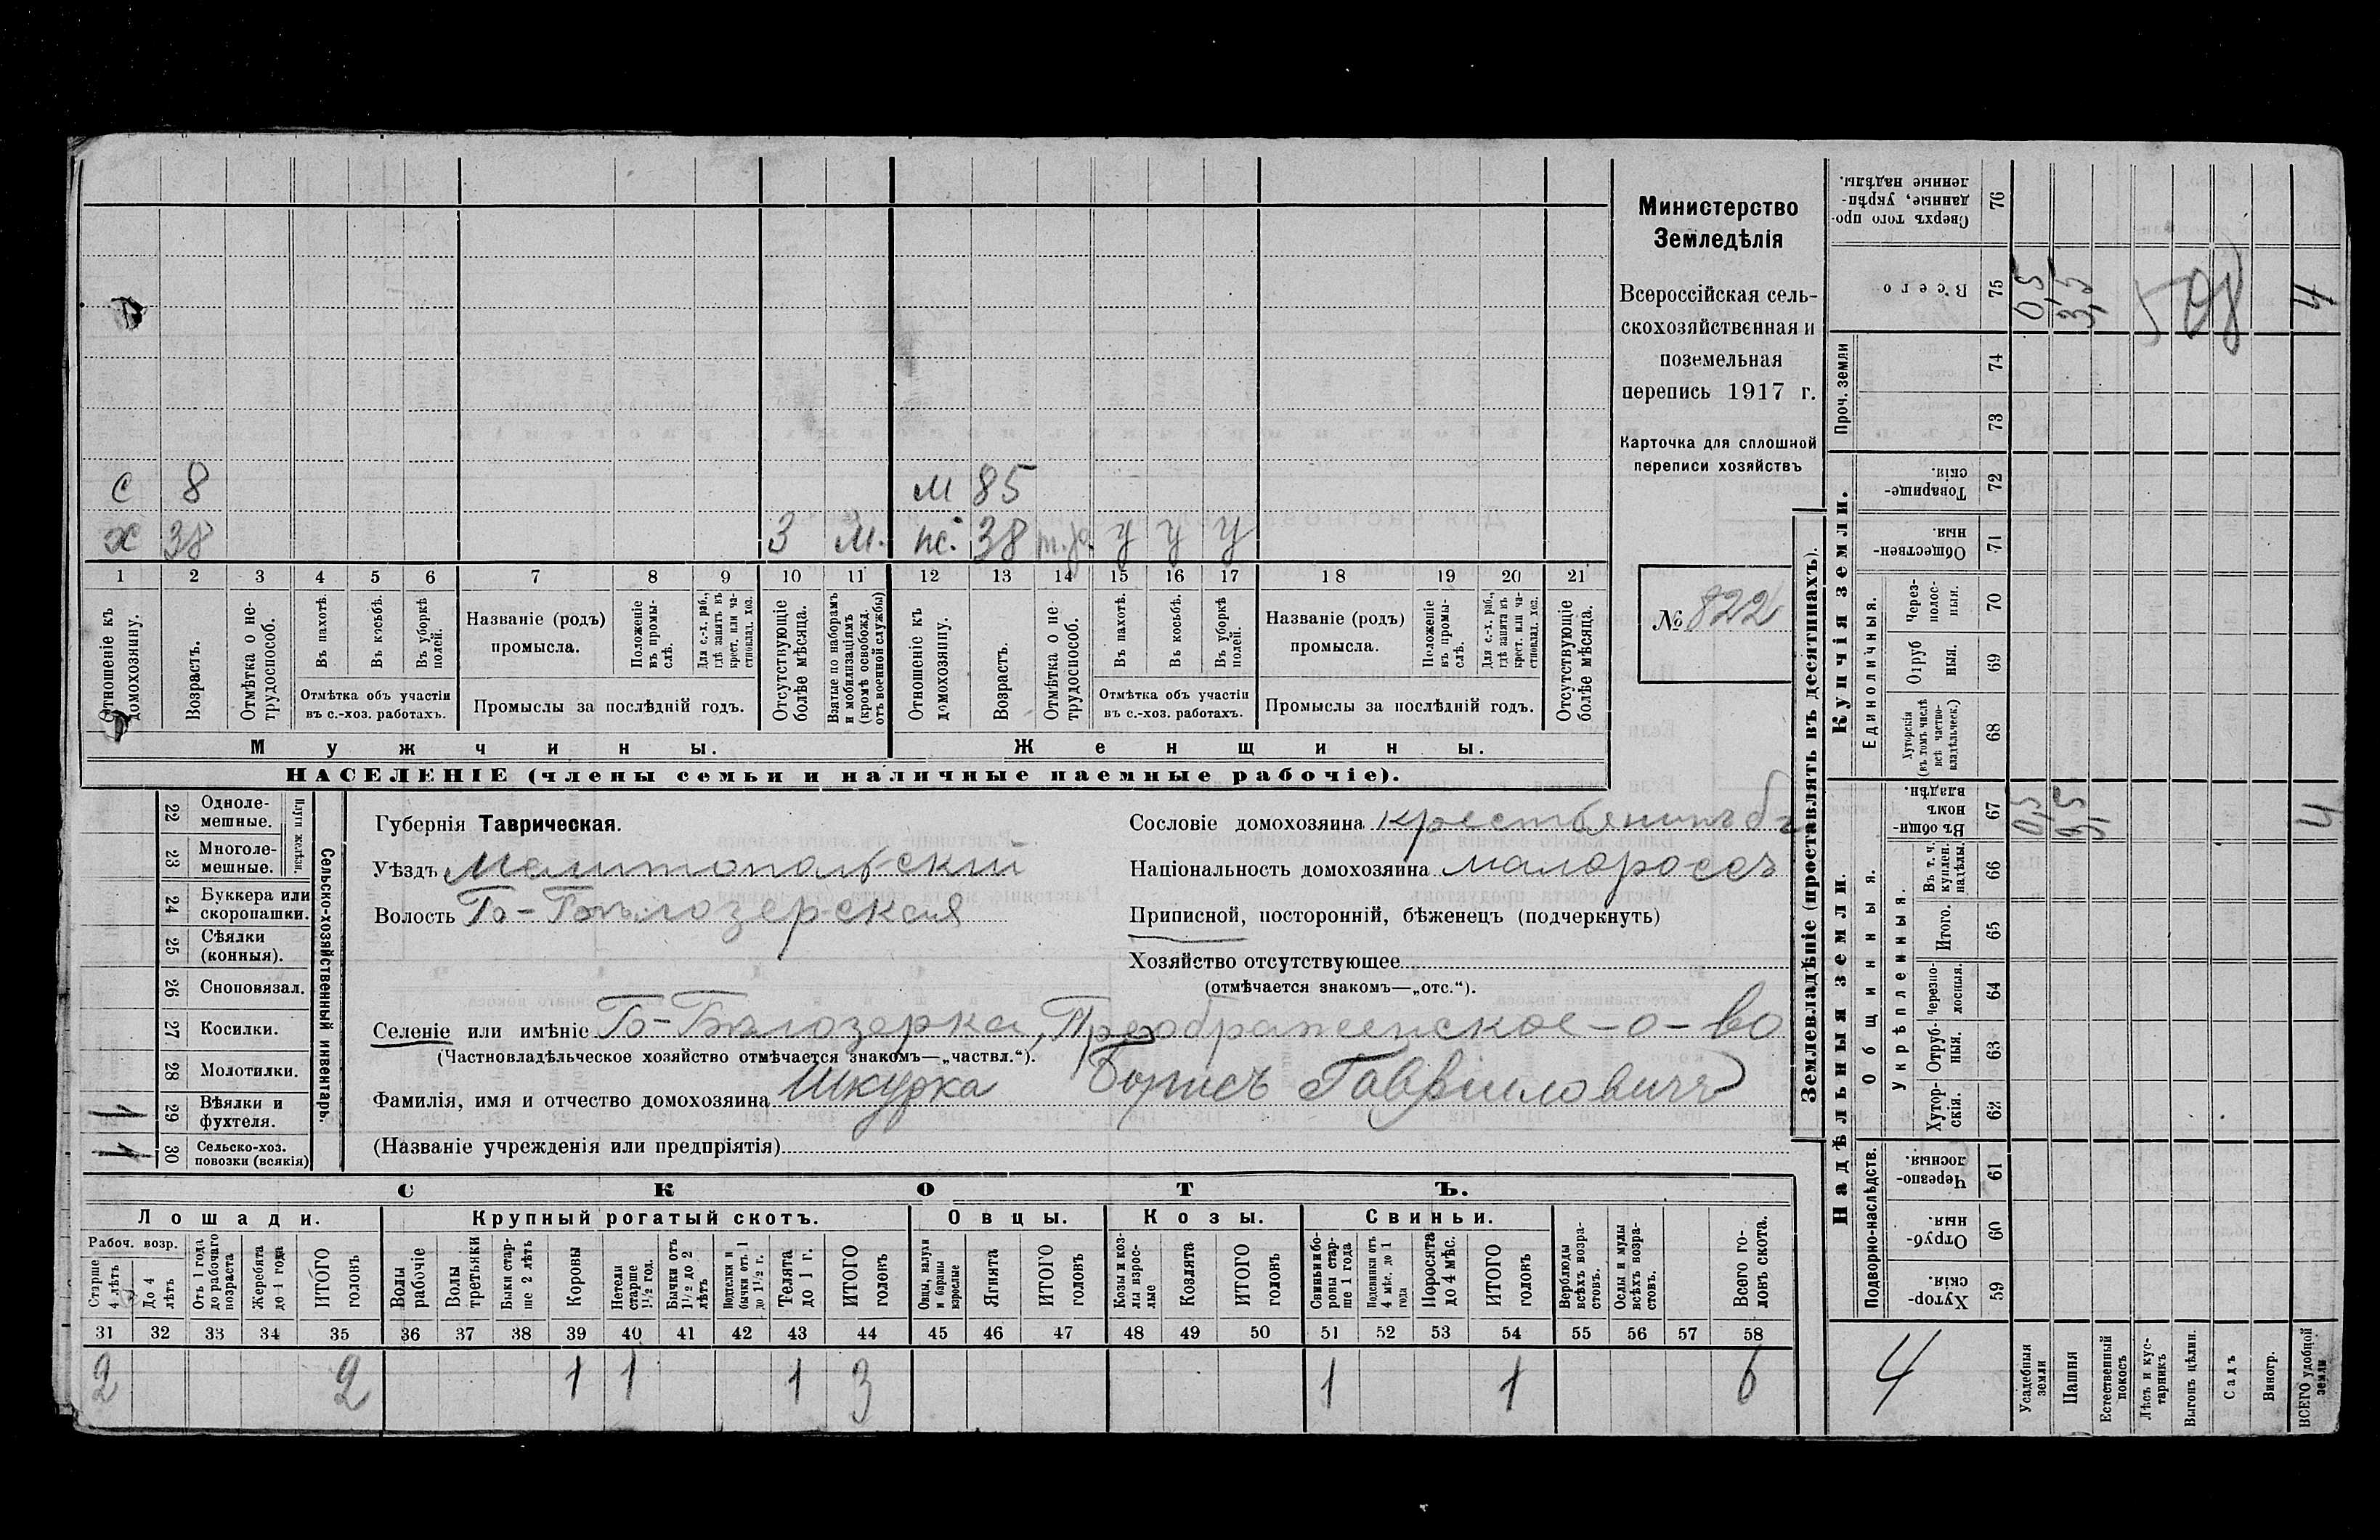 Министерство
Земледѣлія
Всероссійская сель-
скохозяйственная и
поземельная
перепись 1917 г.
Карточка для сплошной
переписи хозяйствъ
№ 822
с 8 м 85
х 38 3 м. ж. 38 у у у
1 2 3 4 5 6 7 8 9 10 11 12 13 14 15 16 17 18 19 20 21
Отношеніе къ домохозяину.
Возрастъ.
Отмѣтка о не-трудоспособ.
Въ пахотѣ.
Въ косьбѣ.
Въ уборкѣ полей.
Отмѣтка объ участіи
въ с.-хоз. работахъ.
Названіе (родъ)
промысла.
Положеніе въ промы-слѣ.
Для с.-х. раб., гдѣ занятъ въ крест. или ча-стновлад. хоз.
Промыслы за послѣдній годъ.
Отсутствующіе болѣе мѣсяца.
Взятые по наборамъ и мобилизаціямъ (кромѣ освобожд. отъ военной службы)
Отношеніе къ домохозяину.
Возрастъ.
Отмѣтка о не-трудоспособ.
Въ пахотѣ.
Въ косьбѣ.
Въ уборкѣ полей.
Отмѣтка объ участіи
въ с.-хоз. работахъ.
Названіе (родъ)
промысла.
Положеніе въ промы-слѣ.
Для с.-х. раб., гдѣ занята въ крест. или ча-стновлад. хоз.
Промыслы за послѣдній годъ.
Отсутствующіе болѣе мѣсяца.
Мужчины. Женщины.
НАСЕЛЕНІЕ (члены семьи и наличные наемные рабочіе).
Сельско-хозяйственный инвентарь.
Плуги желѣзн.
22 Одноле-
мешные.
23 Многоле-
мешные.
24 Буккера или
скоропашки.
25 Сѣялки
(конныя).
26 Сноповязал.
27 Косилки.
28 Молотилки.
1 29 Вѣялки и
фухтеля.
1 30 Сельско-хоз.
повозки (всякія)
Губернія Таврическая.
Уѣздъ Мелитопольскій
Волость Б-Бѣлозерская
Сословіе домохозяина крестьянинъ
Національность домохозяина малороссъ
Приписной, посторонній, бѣженецъ (подчеркнуть)
Хозяйство отсутствующее
(отмѣчается знакомъ—„отс.“).
Селеніе или имѣніе Б-Бѣлозерка, Преображенское-о-во
(Частновладѣльческое хозяйство отмѣчается знакомъ—„частвл.“).
Фамилія, имя и отчество домохозяина Шкурка Борисъ Гавріиловичъ
(Названіе учрежденія или предпріятія)
СКОТЪ.
Лошади. Крупный рогатый скотъ. Овцы. Козы. Свиньи.
Рабоч. возр.
Старше 4 лѣтъ
До 4 лѣтъ
Отъ 1 года до рабочаго возраста
Жеребята до 1 года
ИТОГО головъ
Волы рабочіе
Волы третьяки
Быки стар-ше 2 лѣтъ
Коровы
Нетели старше 1½ год.
Бычки отъ 1½ до 2 лѣтъ
Подтелки и бычки отъ 1 до 1½ г.
Телята до 1 г.
ИТОГО головъ
Овцы, валухи и бараны взрослые
Ягнята
ИТОГО головъ
Козы и коз-лы взрос-лые
Козлята
ИТОГО головъ
Свиньи и бо-ровы стар-ше 1 года
Подсвинки отъ 4 мѣс. до 1 года
Поросята до 4 мѣс.
ИТОГО головъ
Верблюды всѣхъ возра-стовъ.
Ослы и мулы всѣхъ возра-стовъ.
Всего го-ловъ скота.
31 32 33 34 35 36 37 38 39 40 41 42 43 44 45 46 47 48 49 50 51 52 53 54 55 56 57 58
2 2 1 1 1 3 1 1 6
Землевладѣніе (проставлять въ десятинахъ).
Надѣльныя земли. Купчія земли.
Проч. земли
Подворно-наслѣдств.
Общинныя.
Укрѣпленныя.
Единоличныя.
Сверхъ того про-данные, укрѣп-ленные надѣлы. 76
Всего 75 0,5 3,5 4
508
74
73
Товарище-скія. 72
Обществен-ныя 71
Через-полос-ныя. 70
Отруб ныя. 69
Хуторскія (въ томъ числѣ всѣ частно-владѣльческ.) 68
Въ общи-номъ владѣн. 67 0,5 3,5 4
Въ т. ч. куплен. надѣлы. 66
Итого. 65
Черезпо-лосныя. 64
Отруб-ныя. 63
Хутор-скія. 62
Черезпо-лосныя. 61
Отруб-ныя. 60
Хутор-скія. 59
4
Усадебныя земли
Пашня
Естественный покосъ
Лѣсъ и кус-тарникъ
Выгонъ цѣлин.
Садъ
Виногр.
ВСЕГО удобной земли